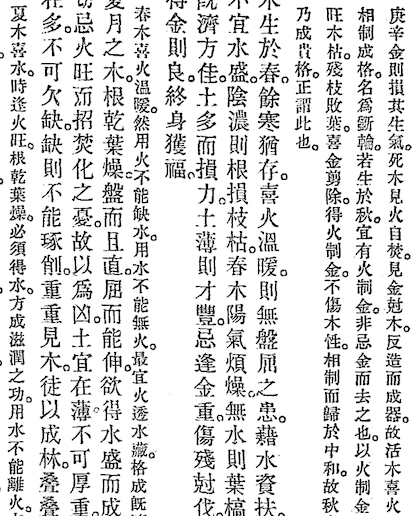 庚辛金則損其生氣。死木見火自焚。見金尅木。反造而成器。故活木喜火
相制成格。名爲斵輪。若生於秋。宜有火制金。非忌金而去之也。以火制金
旺木枯。殘枝敗葉。喜金剪除。得火制金。不傷木性。相制而歸於中和。故秋
乃成貴格。正謂此也。
木生於春。餘寒猶存。喜火溫暖。則無盤屈之患。藉水資扶
不宜水盛。陰濃則根損枝枯。春木陽氣煩燥。無水則葉槁
既濟方佳。土多而損力。土薄則才豐。忌逢金重。傷殘尅伐
得金則良。終身獲福。
春木喜火溫暖。然用火不能缺水。用水不能無火。最宜火透水藏。格成既
夏月之木。根乾葉燥。盤而且直。屈而能伸。欲得水盛而成
切忌火旺而招焚化之憂。故以爲凶。土宜在薄。不可厚重
在多。不可欠缺。缺則不能琢削。重重見木。徒以成林。叠叠
夏木喜水。時逢火旺。根乾葉燥。必須得水。方成滋潤之功。用水不能離火